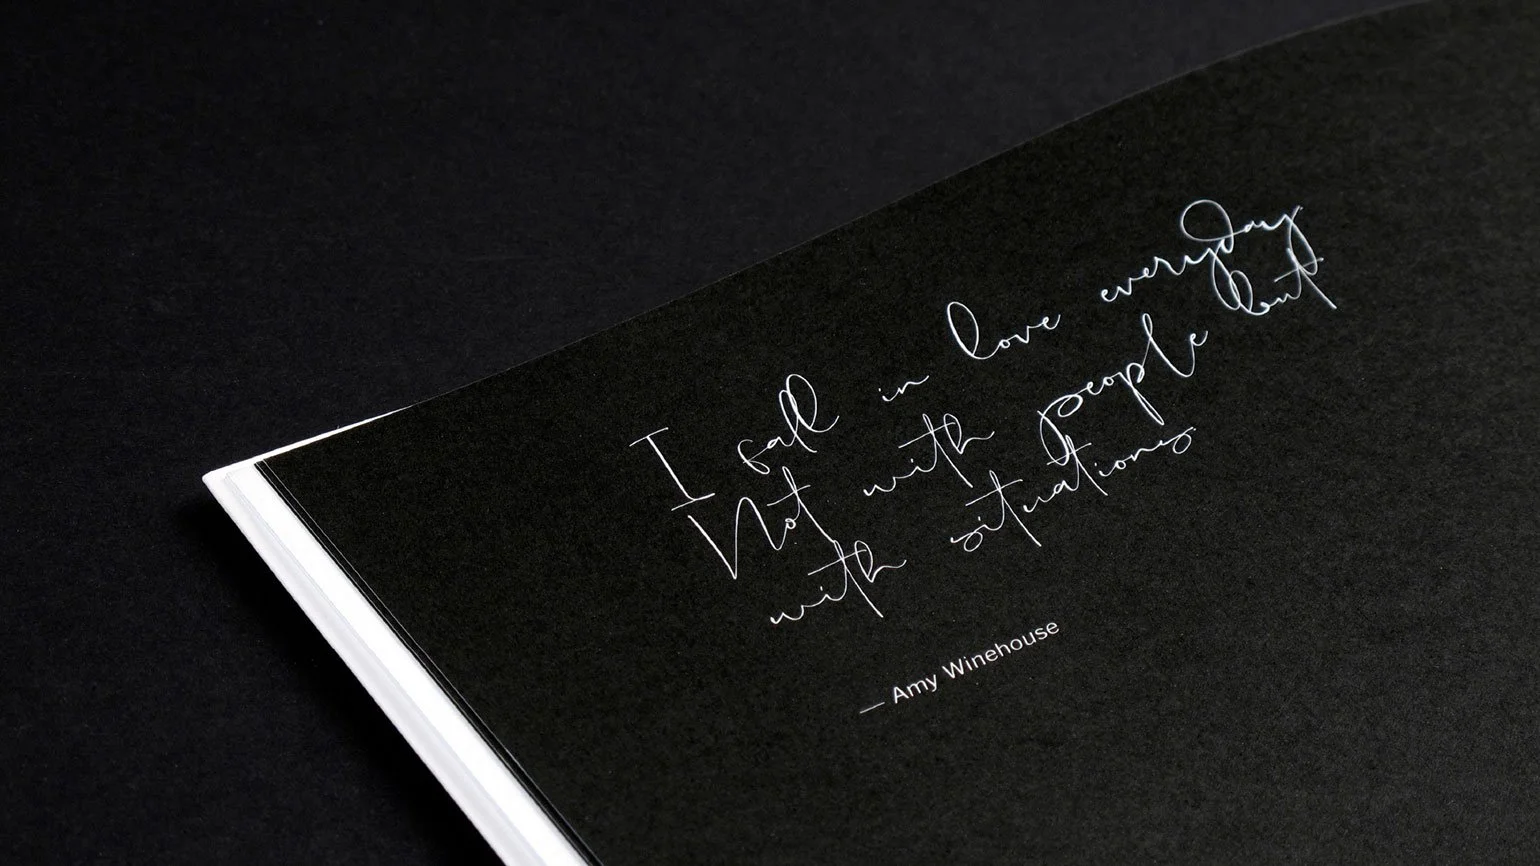 I fall in love everyday
Not with people but
with situations.
— Amy Winehouse